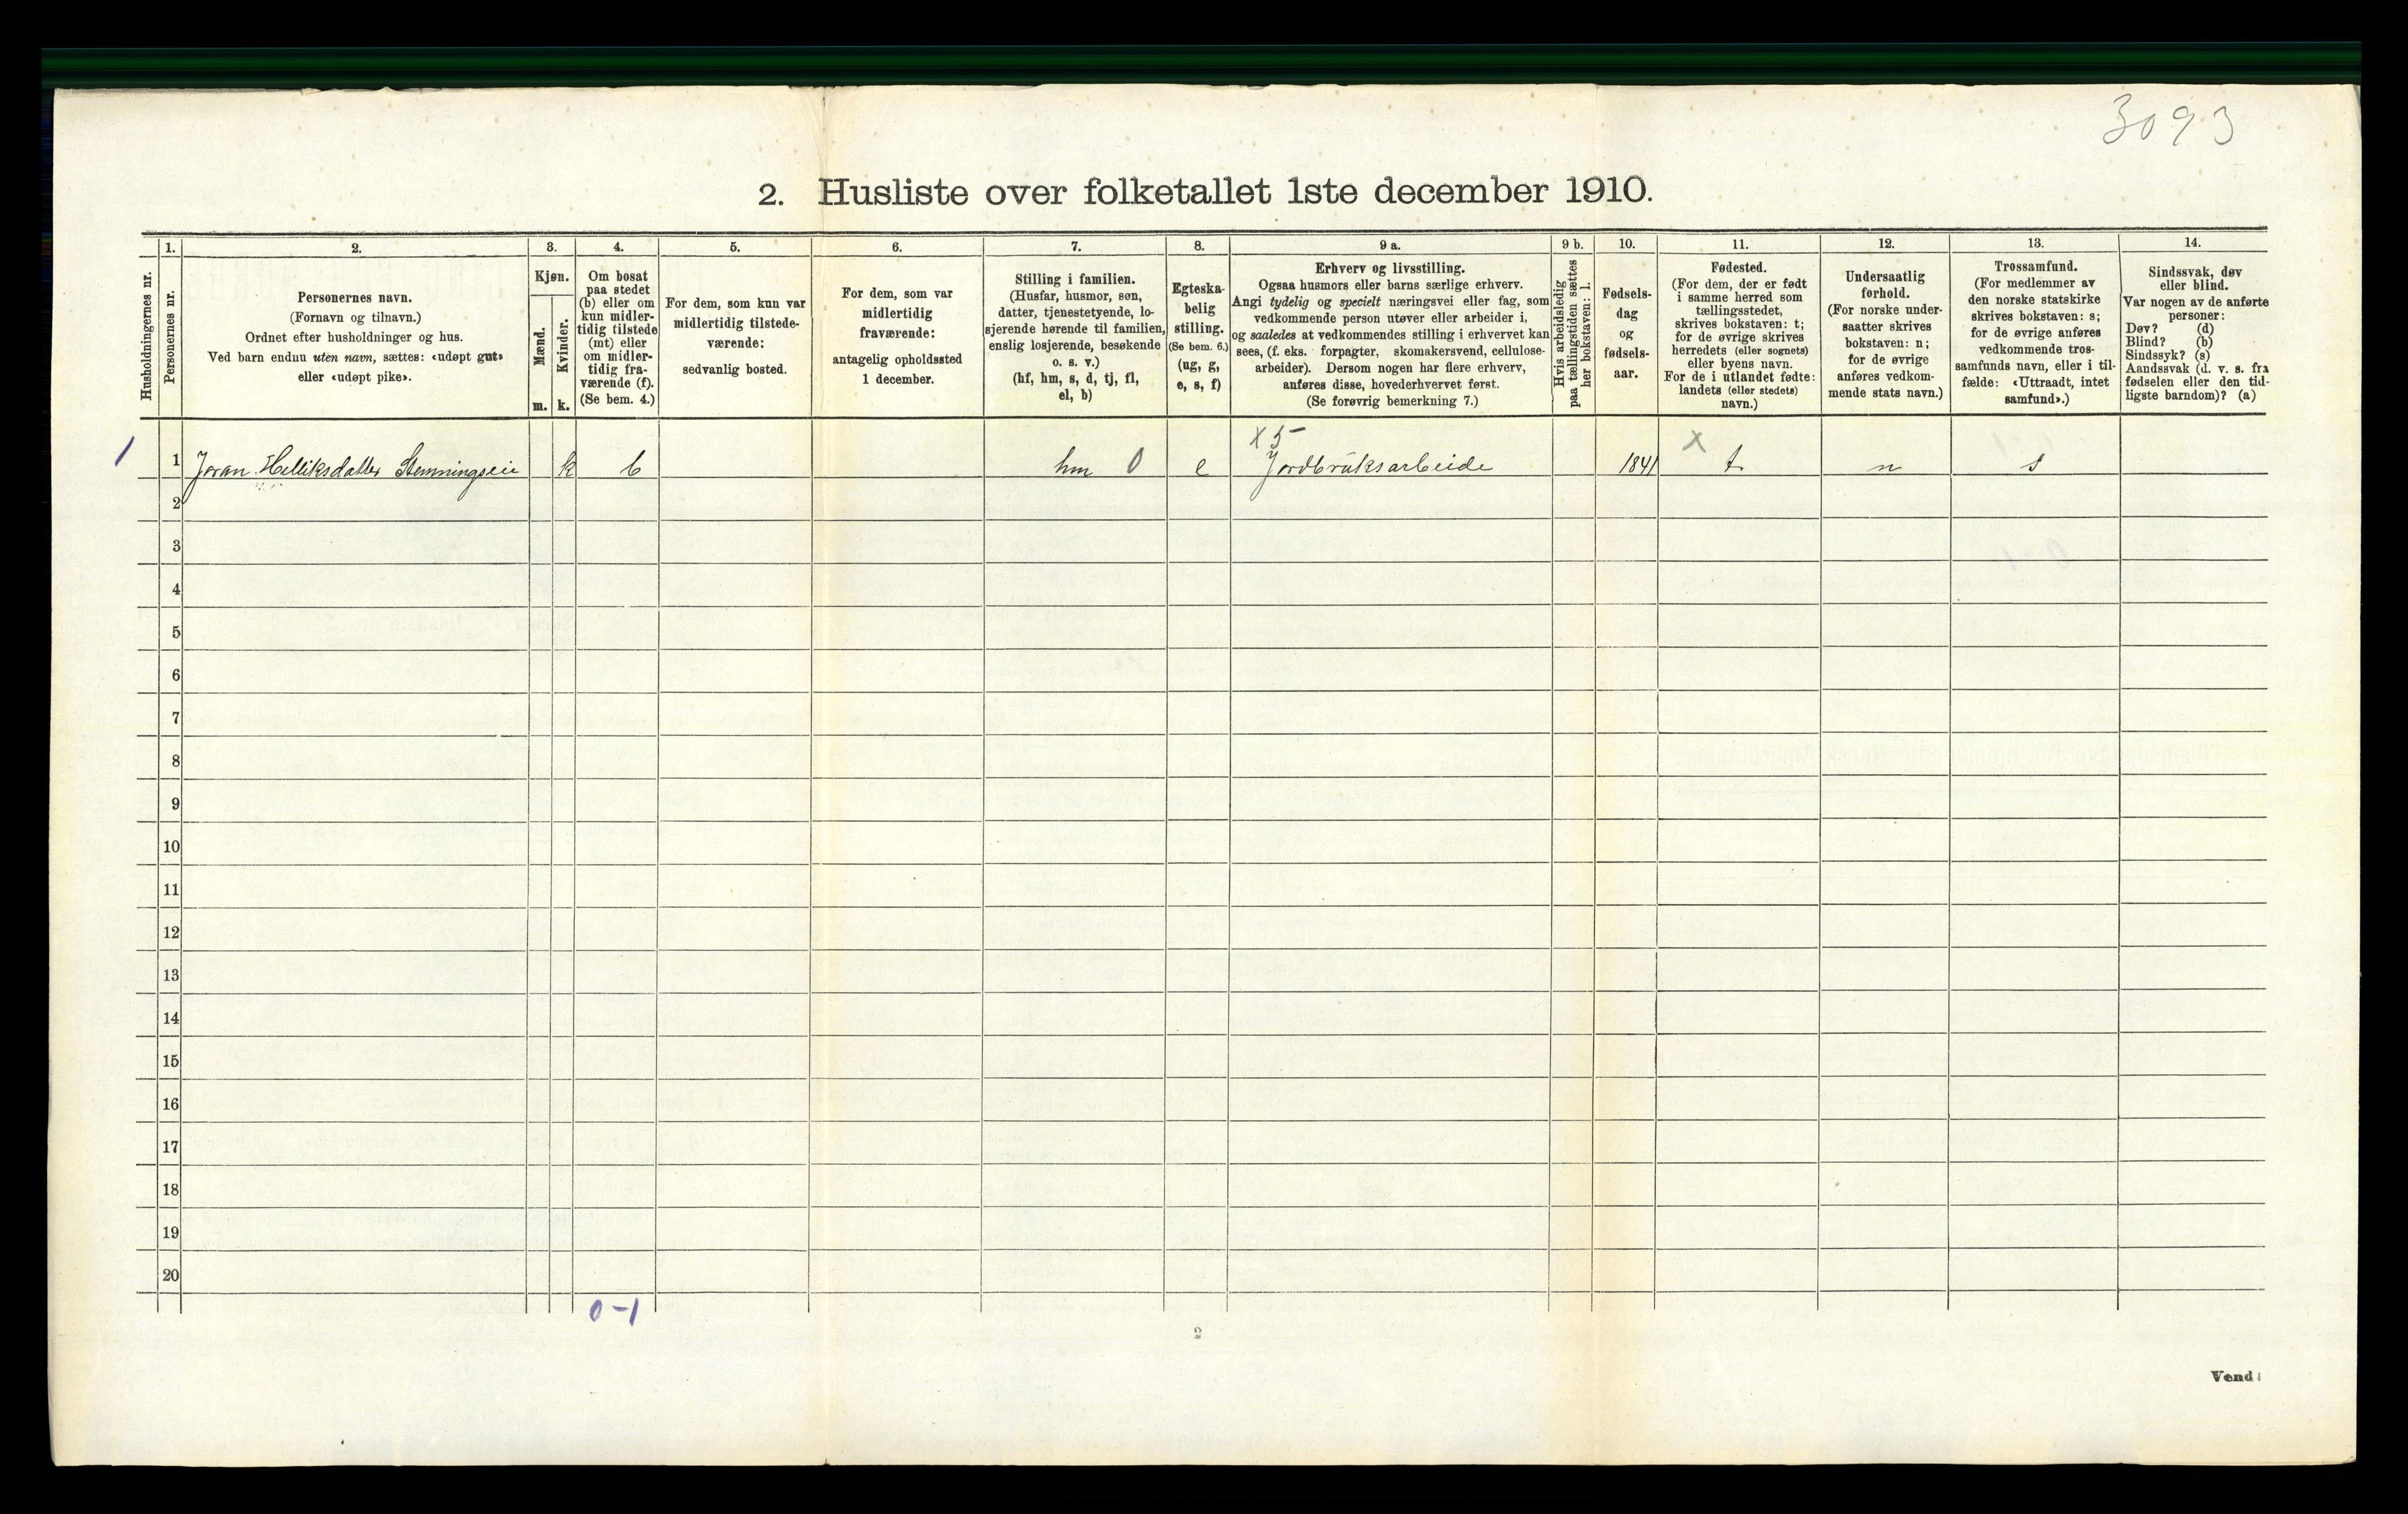 3093
2. Husliste over folketallet 1ste december 1910.
Husholdningernes nr.
1.
Personernes nr.
2.
Personernes navn.
(Fornavn og tilnavn.)
Ordnet efter husholdninger og hus.
Ved barn endnu uten navn, sættes: «udøpt gut»
eller «udøpt pike».
3.
Kjøn.
Mænd.
Kvinder.
m. k.
4.
Om bosat
paa stedet
(b) eller om
kun midler-
tidig tilstede
(mt) eller
om midler-
tidig fra-
værende (f).
(Se bem. 4.)
5.
For dem, som kun var
midlertidig tilstede-
værende:
sedvanlig bosted.
6.
For dem, som var
midlertidig
fraværende:
antagelig opholdssted
1 december.
7.
Stilling i familien.
(Husfar, husmor, søn,
datter, tjenestetyende, lo-
sjerende hørende til familien,
enslig losjerende, besøkende
o. s. v.)
(hf, hm, s, d, tj, fl,
el, b)
8.
Egteska-
belig
stilling.
(Se bem. 6.)
(ug, g,
e, s, f)
9 a.
Erhverv og livsstilling.
Ogsaa husmors eller barns særlige erhverv.
Angi tydelig og specielt næringsvei eller fag, som
vedkommende person utøver eller arbeider i,
og saaledes at vedkommendes stilling i erhvervet kan
sees, (f. eks. forpagter, skomakersvend, cellulose-
arbeider). Dersom nogen har flere erhverv,
anføres disse, hovederhvervet først.
(Se forøvrig bemerkning 7.)
9 b.
Hvis arbeidsledig
paa tællingstiden sættes
her bokstaven: l.
10.
Fødsels-
dag
og
fødsels-
aar.
11.
Fødested.
(For dem, der er født
i samme herred som
tællingsstedet,
skrives bokstaven: t;
for de øvrige skrives
herredets (eller sognets)
eller byens navn.
For de i utlandet fødte:
landets (eller stedets)
navn.)
12.
Undersaatlig
forhold.
(For norske under-
saatter skrives
bokstaven: n;
for de øvrige
anføres vedkom-
mende stats navn.)
13.
Trossamfund.
(For medlemmer av
den norske statskirke
skrives bokstaven: s;
for de øvrige anføres
vedkommende tros-
samfunds navn, eller i til-
fælde: «Uttraadt, intet
samfund».)
14.
Sindssvak, døv
eller blind.
Var nogen av de anførte
personer:
Døv? (d)
Blind? (b)
Sindssyk? (s)
Aandssvak (d. v. s. fra
fødselen eller den tid-
ligste barndom)? (a)
x 5 x
1 1 Joran Helliksdatter Stemningseie k b hm 0 e Jordbruksarbeide 1841 t n s
2
3
4
5
6
7
8
9
10
11
12
13
14
15
16
17
18
19
20
0-1
2
Vend!